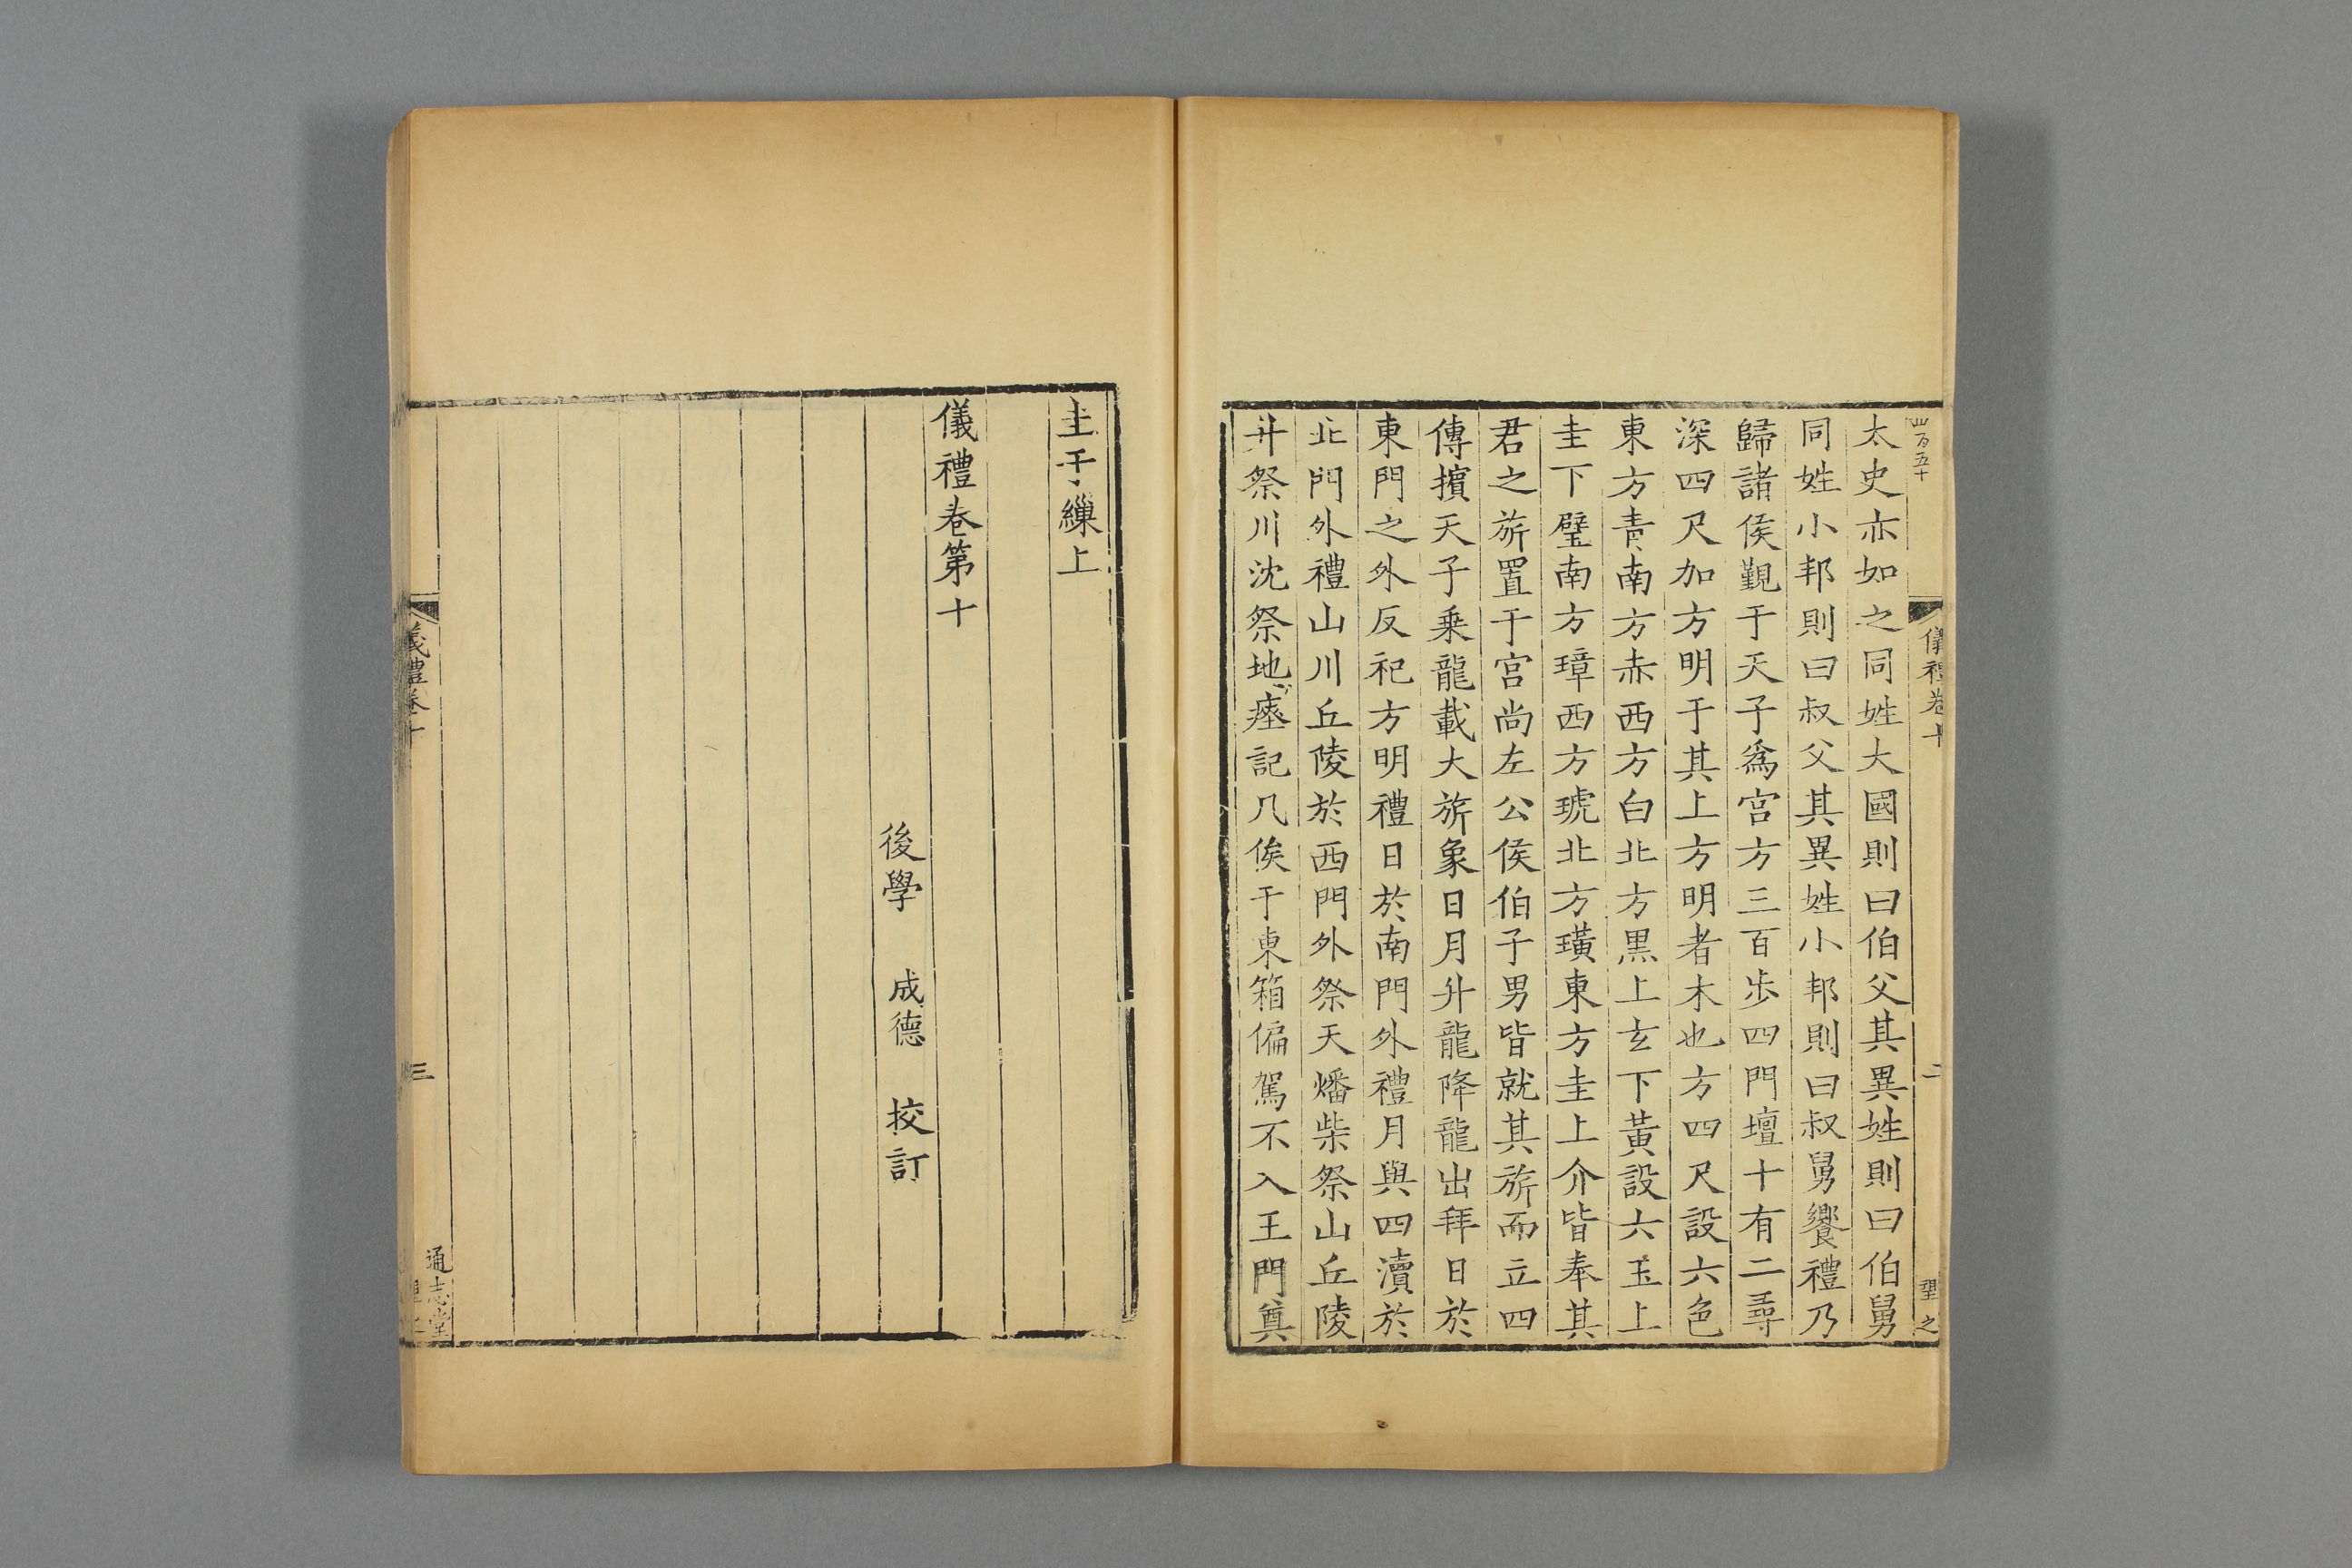 四百五十
儀禮卷十
二
聖之
太史亦如之同姓大國則曰伯父其異姓則曰伯舅
同姓小邦則曰叔父其異姓小邦則曰叔舅饗禮乃
歸諸侯覲于天子爲宮方三百步四門壇十有二尋
深四尺加方明于其上方明者木也方四尺設六色
東方青南方赤西方白北方黑上玄下黃設六玉上
圭下璧南方璋西方琥北方璜東方圭上介皆奉其
君之旂置于宮尚左公侯伯子男皆就其旂而立四
傳擯天子乗龍載大旂象日月升龍降龍出拜日於
東門之外反祀方明禮日於南門外禮月與四瀆於
北門外禮山川丘陵於西門外祭天燔柴祭山丘陵
升祭川沈祭地瘞記几俟于東箱偏駕不入王門奠
圭于繅上
儀禮卷第十
後學 成德 挍訂
儀禮卷十
三
通志堂